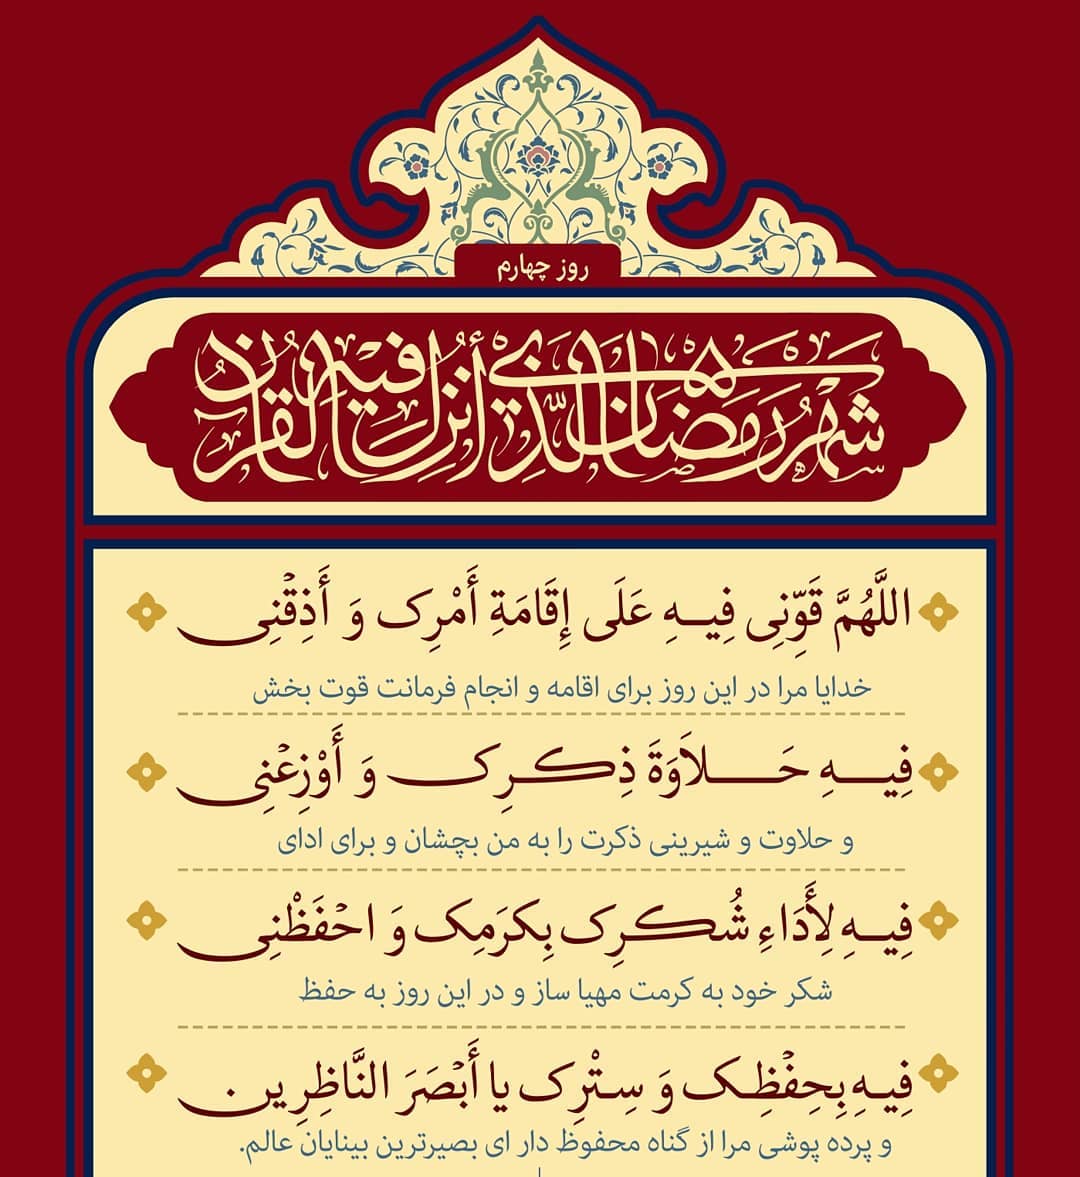 روز چهارم
شهر رمضان الذی أنزل فیه القرآن
اللَّهُمَّ قَوِّنِی فِیهِ عَلَی إِقَامَةِ أَمْرِک وَ أَذِقْنِی
خدایا مرا در این روز برای اقامه و انجام فرمانت قوت بخش
فِیهِ حَلاَوَةَ ذِکرِک وَ أَوْزِعْنِی
و حلاوت و شیرینی ذکرت را به من بچشان و برای ادای
فِیهِ لِأَدَاءِ شُکرِک بِکرَمِک وَ احْفَظْنِی
شکر خود به کرمت مهیا ساز و در این روز به حفظ
فِیهِ بِحِفْظِک وَ سِتْرِک یا أَبْصَرَ النَّاظِرِین.
و پرده پوشی مرا از گناه محفوظ دار ای بصیرترین بینایان عالم.